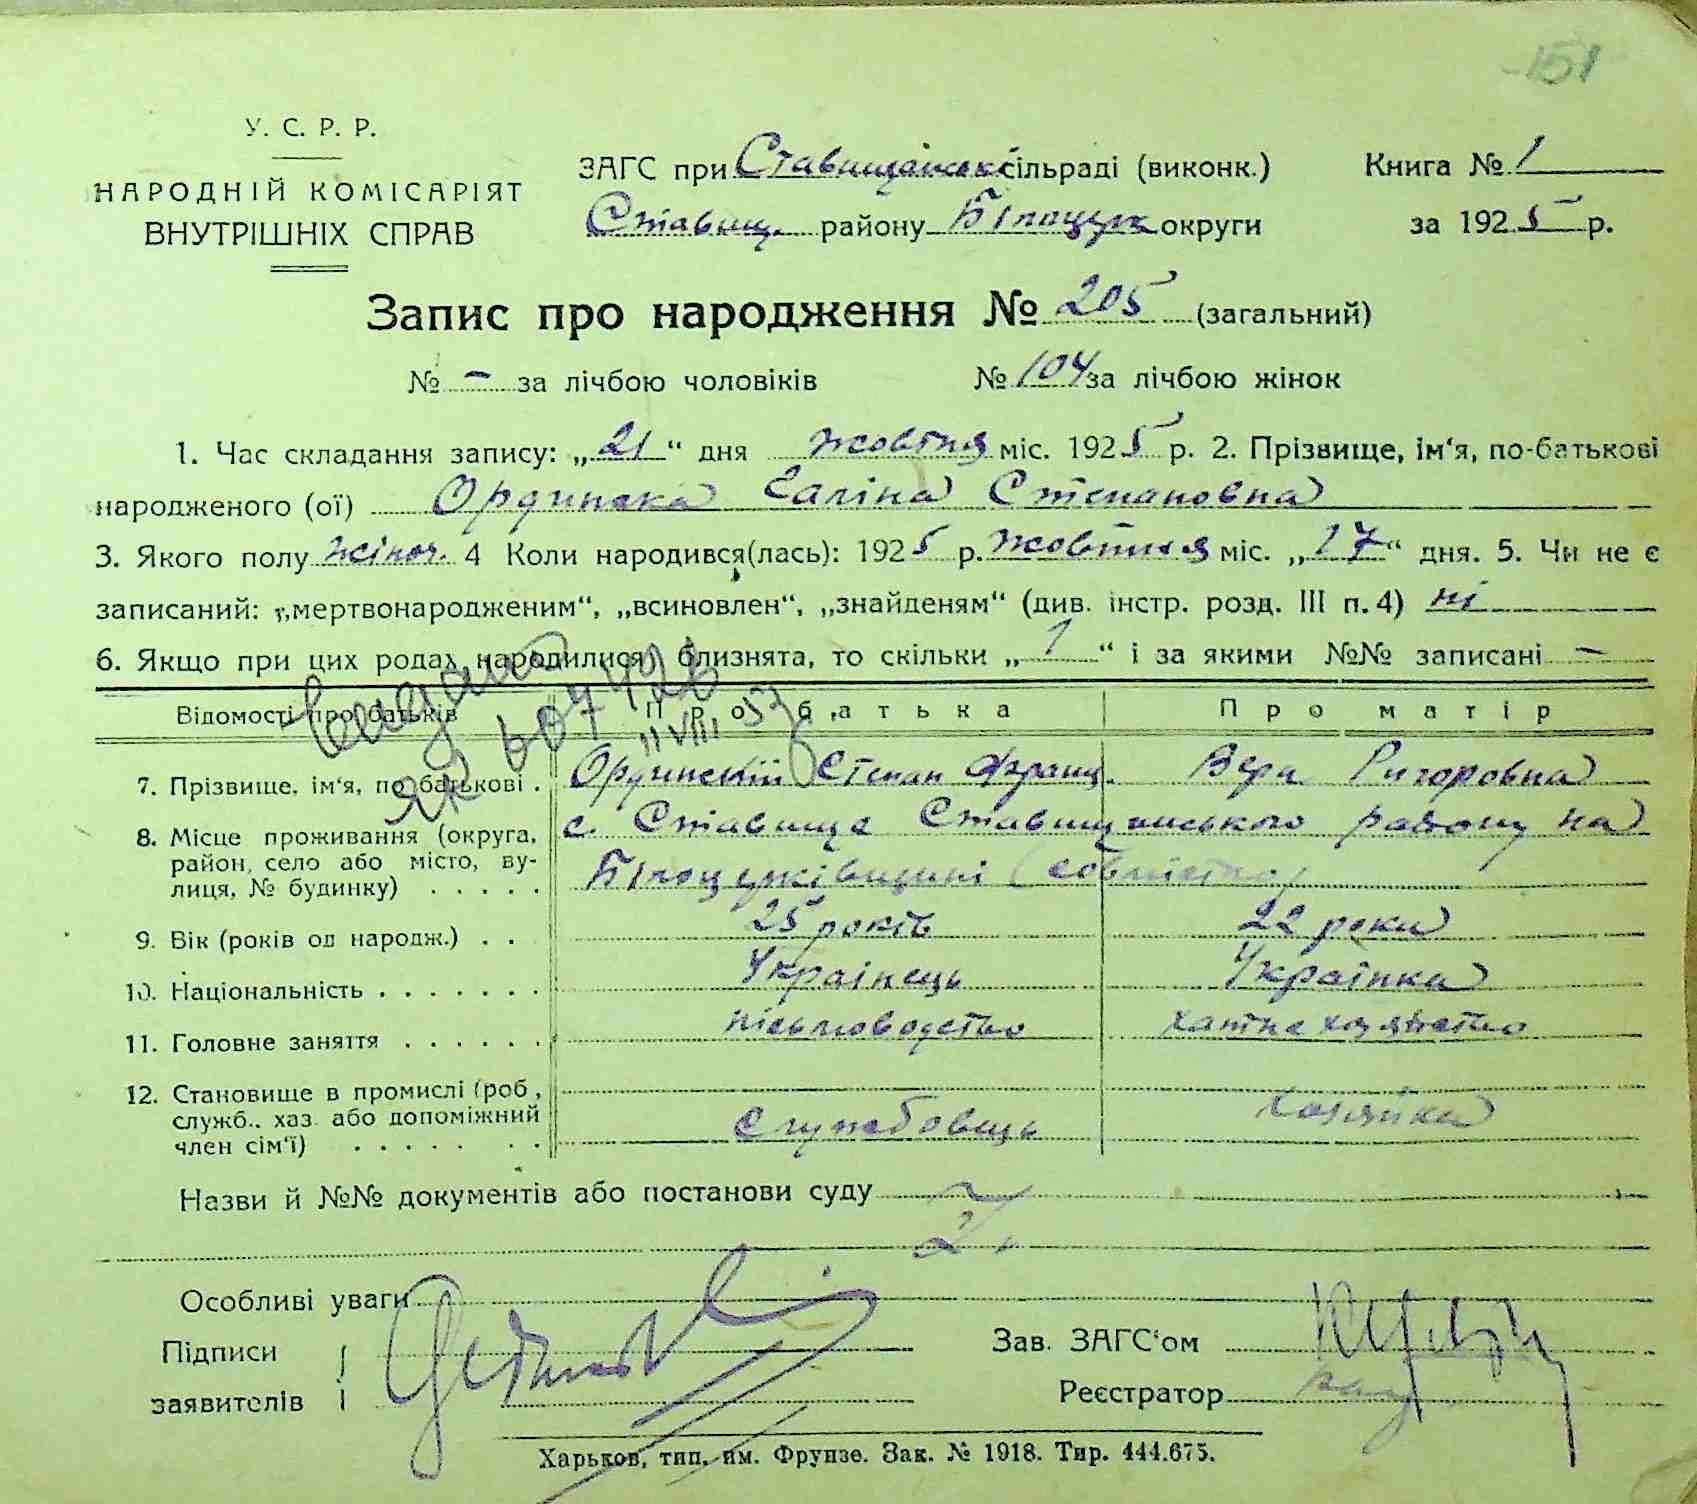 151
У. С. Р. Р.
НАРОДНІЙ КОМІСАРІЯТ
ВНУТРІШНІХ СПРАВ
ЗАГС при Ставищанськ сільраді (виконк.)
Ставищ. району Білоцерк округи
Книга № 1
за 1925 р.
Запис про народження № 205 (загальний)
№ – за лічбою чоловіків № 104 за лічбою жінок
1. Час складання запису: „21“ дня жовтня міс. 1925 р. 2. Прізвище, ім‘я, по-батькові
народженого (ої) Ординска Галіна Степановна
3. Якого полу жіноч. 4 Коли народився(лась): 1925 р. жовтня міс. „17“ дня. 5. Чи не є
записаний: „мертвонародженим“, „всиновлен“, „знайденям“ (див. інстр. розд. III п. 4) ні
6. Якщо при цих родах народилися близнята, то скільки „1“ і за якими №№ записані –
видано
ЯК 607426
11 VIII 53
Відомості про батьків Про батька Про матір
7. Прізвище, ім‘я, по батькові . Ординский Степан Франц. Вера Григоровна
8. Місце проживання (округа, с. Ставище Ставищанського району на
район, село або місто, ву- Білоцерківщині
лиця, № будинку) . . . . .
9. Вік (років од народж.) . . 25 років 22 роки
10. Національність . . . . . . . Українець Українка
11. Головне заняття . . . . . . письмоводство хатнє хозяйство
12. Становище в промислі (роб.,
служб., хаз. або допоміжний службовець хозяйка
член сім‘ї) . . . . . . .
Назви й №№ документів або постанови суду
Особливі уваги
Підписи
заявителів
Зав. ЗАГС‘ом
Реєстратор
Харьков, тип. им. Фрунзе. Зак. № 1918. Тир. 444.675.